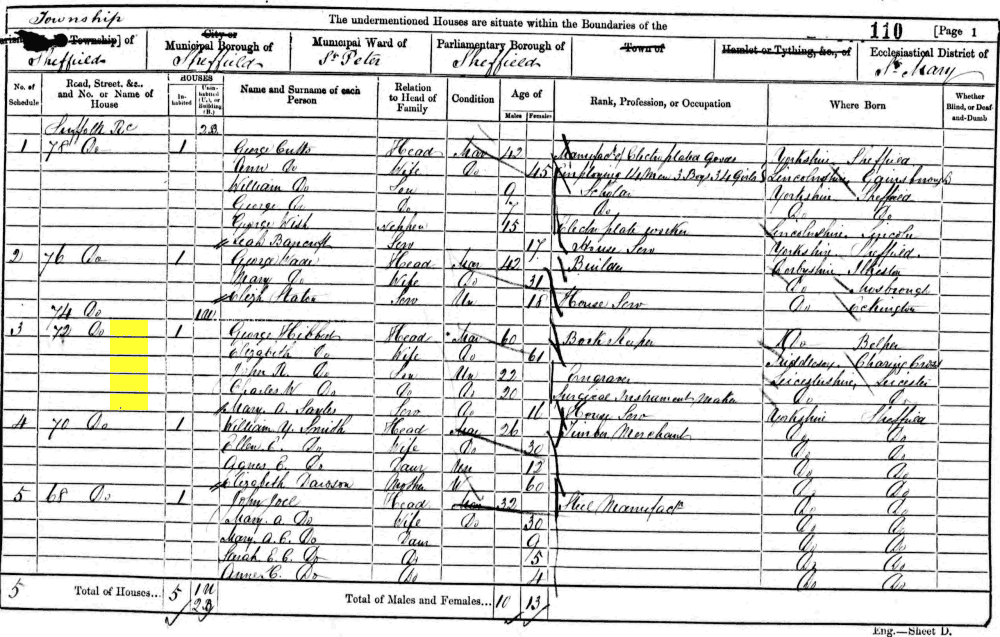 The undermentioned Houses are situate within the Boundaries of the
110 [Page 1
Township
Township] of Sheffield
City or Municipal Borough of Sheffield
Municipal Ward of St Peter
Parliamentary Borough of Sheffield
Town of
Hamlet or Tything, &c., of
Ecclesiastical District of St Mary
No. of Schedule
Road, Street, &c., and No. or Name of House
HOUSES
Inhabited
Uninhabited (U.), or Building (B.)
Name and Surname of each Person
Relation to Head of Family
Condition
Age of
Males Females
Rank, Profession, or Occupation
Where Born
Whether Blind, or Deaf-and-Dumb
Suffolk Rd 2B
1 78 Do 1 George Cutts Head Mar 42 Manufacr of Electro plated Goods Yorkshire Sheffield
Ann Do Wife Do 45 Employing 14 Men 3 Boys 34 Girls Lincolnshire Gainsborough
William Do Son 9 Scholar Yorkshire Sheffield
George Do Do 7 Do Do Do
George Nephew 15 Electro plate worker Lincolnshire Lincoln
Leah Bancroft Serv 17 House Serv Yorkshire Sheffield
2 76 Do 1 George Wade Head Mar 42 Builder Derbyshire
Mary Do Wife Do 31 Do Mosbrough
Slaton Serv Un 18 House Serv Do Eckington
74 Do 1U
3 72 Do 1 George Hibbert Head Mar 60 Book Keeper Do Belper
Elizabeth Do Wife Do 61 Middlesex Charing Cross
John Do Son Un 22 Engraver Leicestershire Leicester
Charles W Do Do Do 20 Surgical Instrument Maker Do Do
Mary A. Serv Do 16 House Serv Yorkshire Sheffield
4 70 Do 1 William Smith Head Mar 26 Timber Merchant Do Do
Ellen E. Do Wife Do 30 Do Do
Agnes E. Do Daur Un 12 Do Do
Elizabeth Dawson Mother W 60 Do Do
5 68 Do 1 John Joel Head Mar 32 Steel Manufacr Do Do
Mary. A Do Wife Do 30 Do Do
Mary A. E. Do Daur 9 Do Do
Sarah E. E. Do Do 5 Do Do
Annie E. Do Do 4 Do Do
5 Total of Houses... 5 1U 2B Total of Males and Females... 10 13
Eng.—Sheet D.